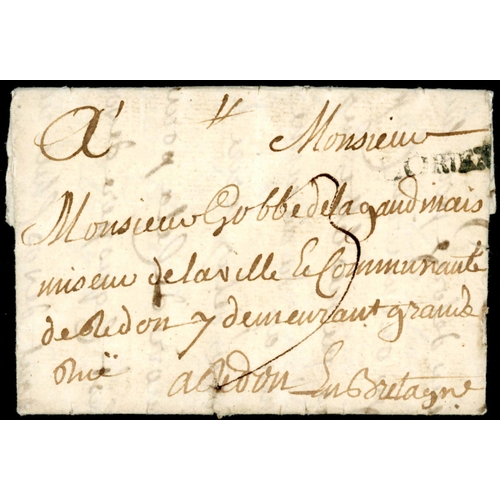 A' Monsieur
LORIENT
Monsieur Gobbé de la gaudmais
miseur de la ville Et Communauté
de Redon y demeurant grande
Ruë a Redon En Bretagne